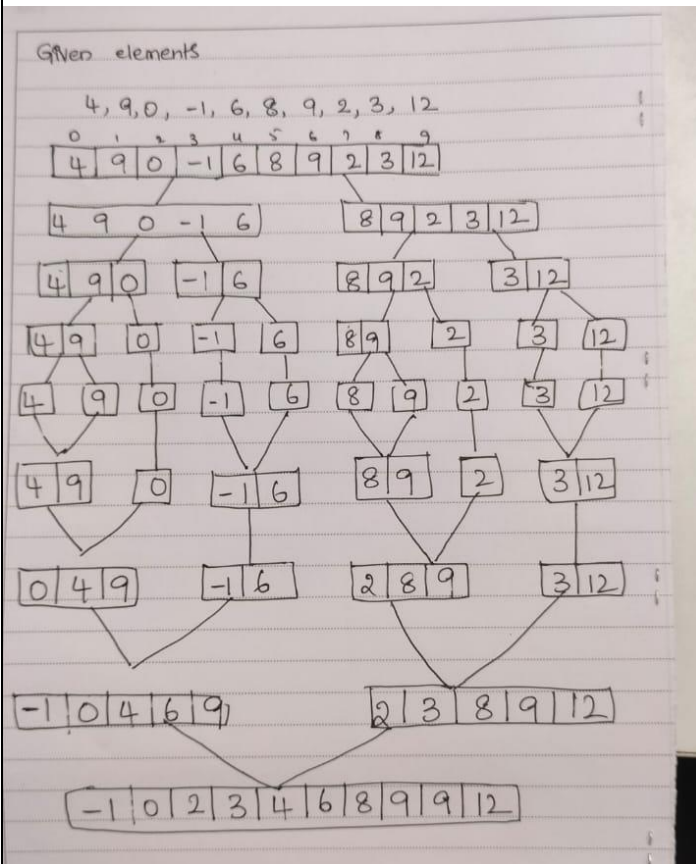 Given elements
4, 9, 0, -1, 6, 8, 9, 2, 3, 12
0 1 2 3 4 5 6 7 8 9
4 9 0 -1 6 8 9 2 3 12
4 9 0 -1 6 8 9 2 3 12
4 9 0 -1 6 8 9 2 3 12
4 9 0 -1 6 8 9 2 3 12
4 9 0 -1 6 8 9 2 3 12
4 9 0 -1 6 8 9 2 3 12
0 4 9 -1 6 2 8 9 3 12
-1 0 4 6 9 2 3 8 9 12
-1 0 2 3 4 6 8 9 9 12